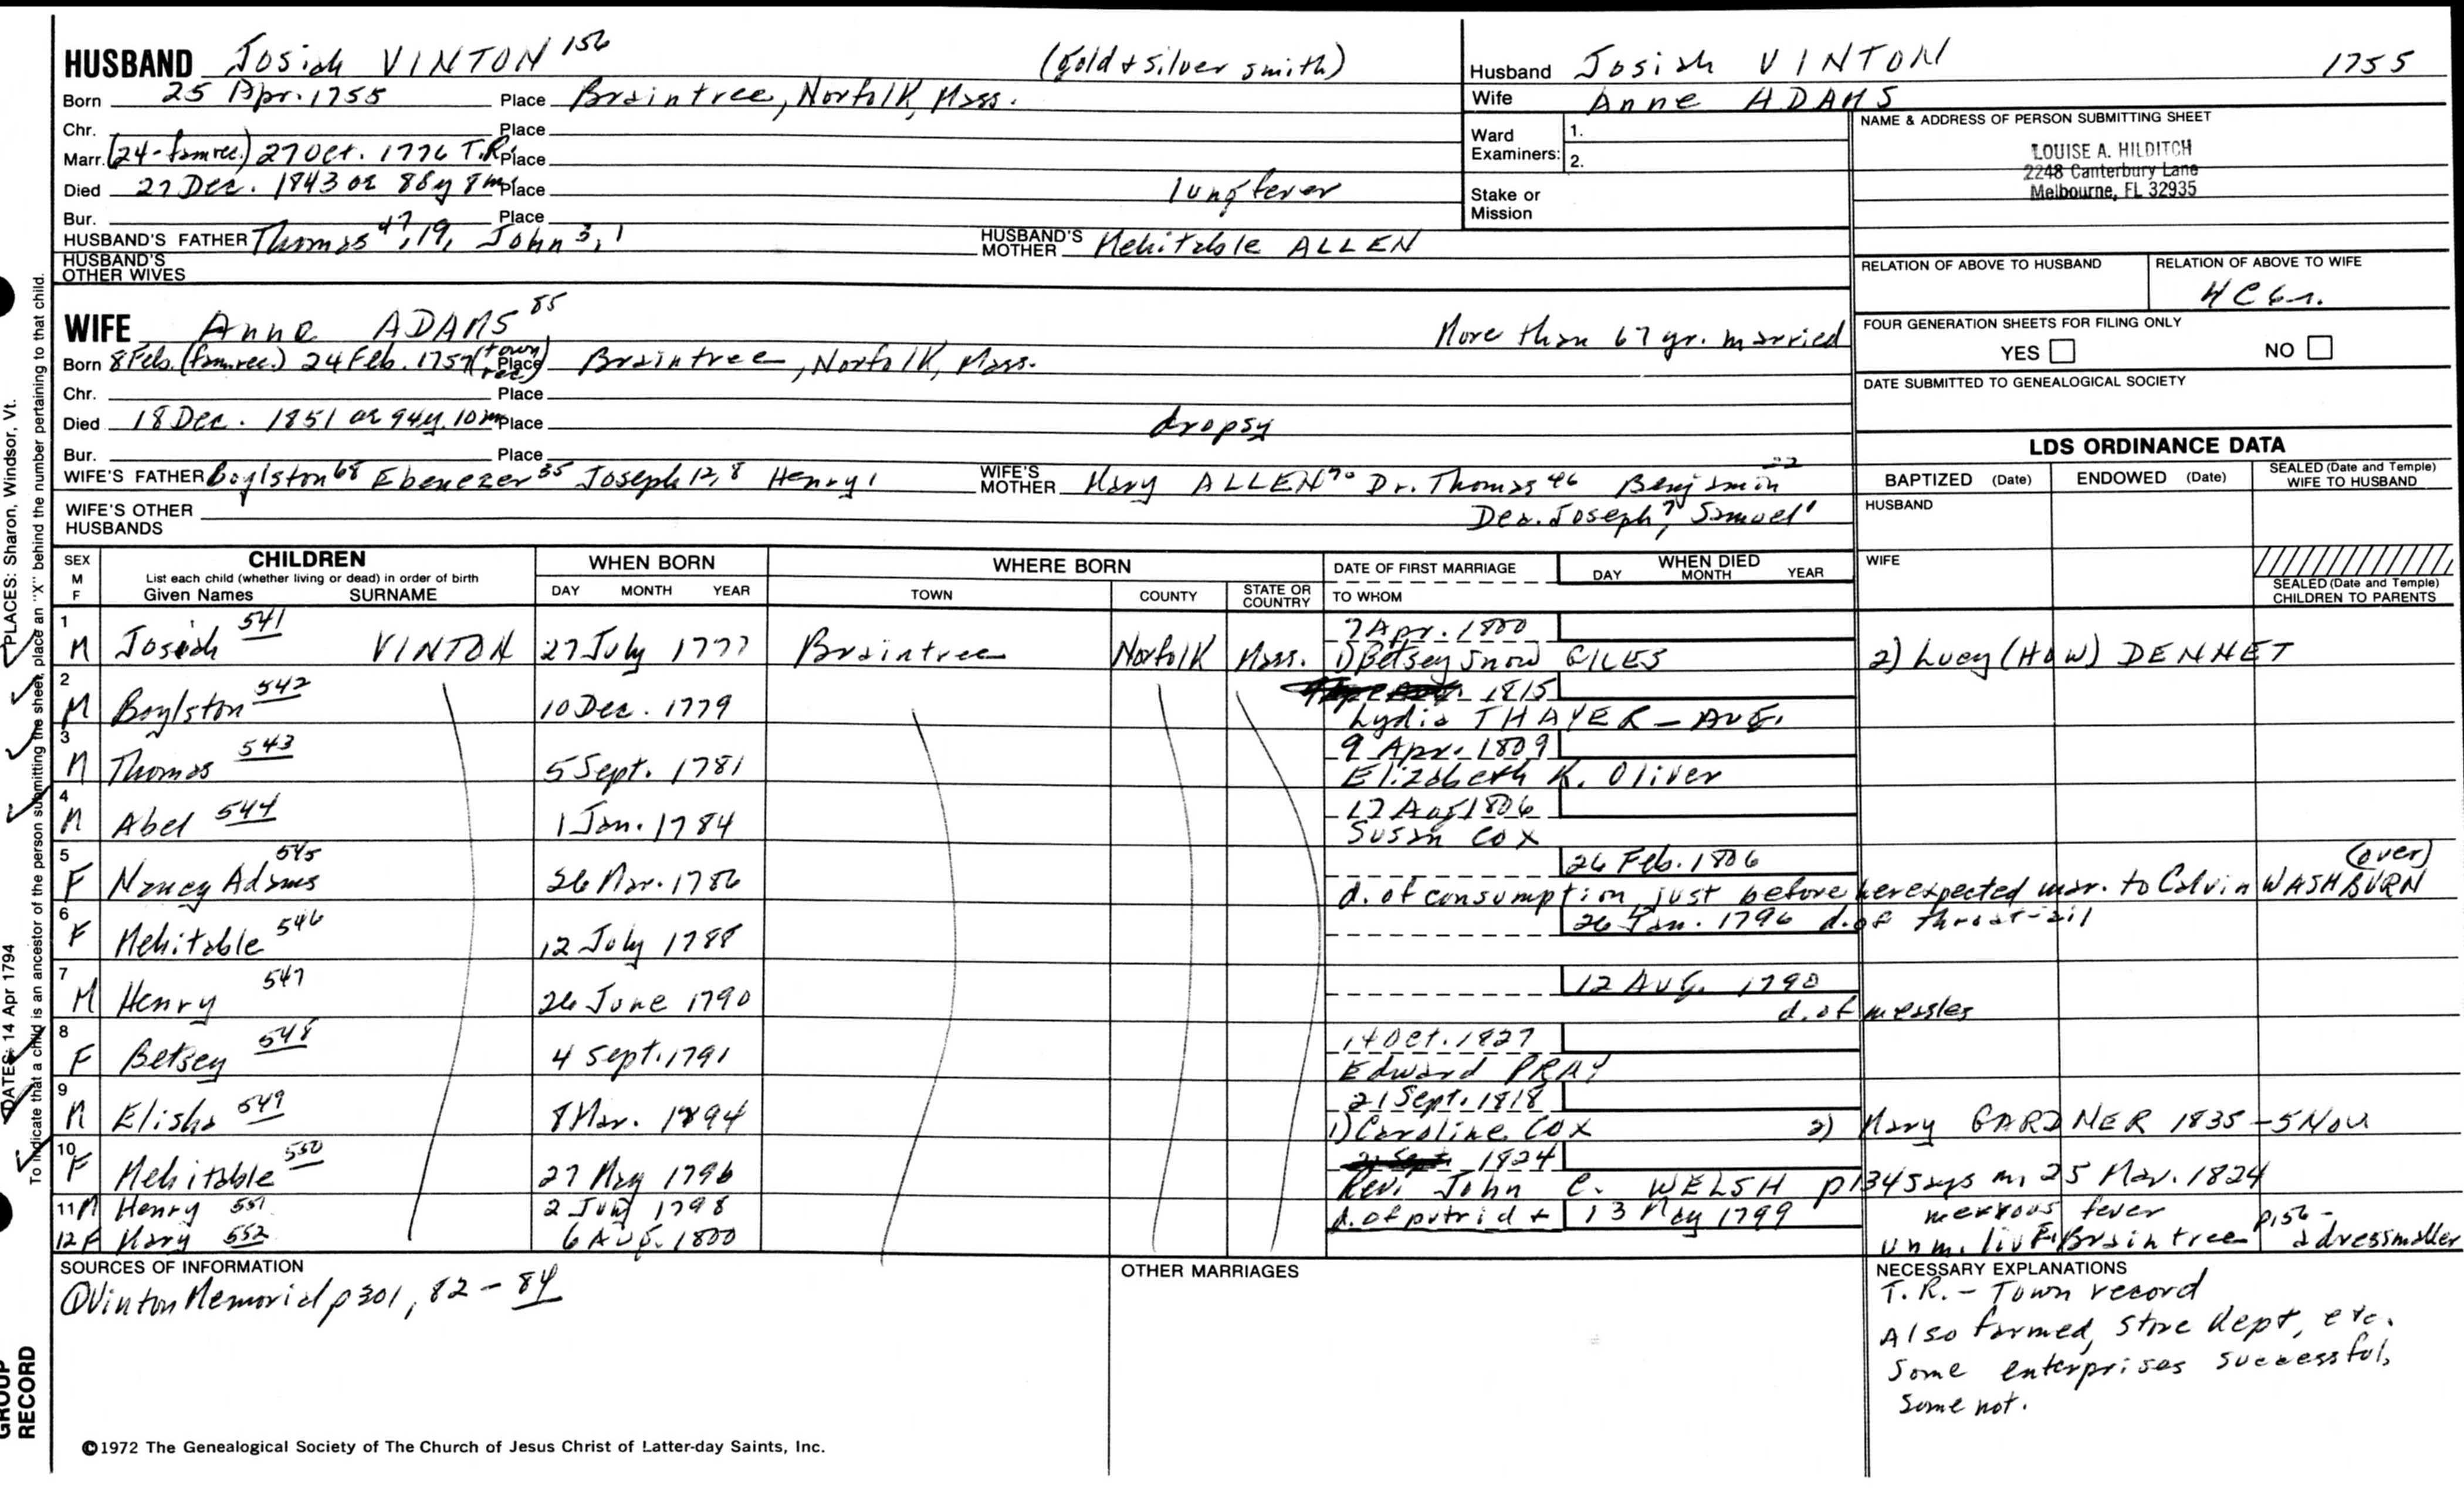 HUSBAND Josiah VINTON 156 (gold & silver smith)
Born 25 Apr. 1755 Place Braintree, Norfolk, Mass.
Chr. Place
Marr. (24-fam rec.) 27 Oct. 1776 T.R. Place
Died 27 Dec. 1843 ae 88y 8m Place lung fever
Bur. Place
HUSBAND'S FATHER Thomas 47, 19, John 3, 1 HUSBAND'S MOTHER Mehitable ALLEN
HUSBAND'S OTHER WIVES
WIFE Anne ADAMS 85 More than 67 yr. married
Born 8 Feb. (fam rec.) 24 Feb. 1757 (town rec) Place Braintree, Norfolk, Mass.
Chr. Place
Died 18 Dec. 1851 ae 94y. 10m Place dropsy
Bur. Place
WIFE'S FATHER Boylston 68 Ebenezer 35 Joseph 12, 8 Henry 1 WIFE'S MOTHER Mary ALLEN 70 Dr. Thomas 46 Benjamin 22
Dea. Joseph 7 Samuel 1
WIFE'S OTHER HUSBANDS
Husband Josiah VINTON 1755
Wife Anne ADAMS
Ward Examiners: 1.
2.
Stake or Mission
NAME & ADDRESS OF PERSON SUBMITTING SHEET
LOUISE A. HILDITCH
2248 Canterbury Lane
Melbourne, FL 32935
RELATION OF ABOVE TO HUSBAND RELATION OF ABOVE TO WIFE
4C6r.
FOUR GENERATION SHEETS FOR FILING ONLY
YES NO
DATE SUBMITTED TO GENEALOGICAL SOCIETY
LDS ORDINANCE DATA
BAPTIZED (Date) ENDOWED (Date) SEALED (Date and Temple) WIFE TO HUSBAND
HUSBAND
WIFE
SEALED (Date and Temple) CHILDREN TO PARENTS
SEX M F CHILDREN List each child (whether living or dead) in order of birth Given Names SURNAME WHEN BORN DAY MONTH YEAR WHERE BORN TOWN COUNTY STATE OR COUNTRY DATE OF FIRST MARRIAGE TO WHOM WHEN DIED DAY MONTH YEAR
7 Apr. 1800
1 M Josiah 541 VINTON 27 July 1777 Braintree Norfolk Mass. 1) Betsey Snow GILES 2) Lucy (HOW) DENNET
1815
2 M Boylston 542 10 Dec. 1779 Lydia THAYER - AUG.
9 Apr. 1809
3 M Thomas 543 5 Sept. 1781 Elizabeth K. Oliver
17 Aug 1806
4 M Abel 544 1 Jan. 1784 Susan COX
26 Feb. 1806 (over)
5 F Nancy Adams 545 26 Mar. 1786 d. of consumption just before her expected mar. to Calvin WASHBURN
26 Jan. 1796 d. of throat-ail
6 F Mehitable 546 12 July 1788
12 AUG. 1790
7 M Henry 547 26 June 1790 d. of measles
14 Oct. 1827
8 F Betsey 548 4 Sept. 1791 Edward PRAY
21 Sept. 1818
9 M Elisha 549 8 Mar. 1794 1) Caroline COX 2) Mary GARDNER 1835 - 5 Nov
1824
10 F Mehitable 550 27 May 1796 Rev. John C. WELSH p134 says m. 25 Mar. 1824
11 M Henry 551 2 July 1798 d. of putrid & 13 May 1799 nervous fever
12 F Mary 552 6 AUG. 1800 unm. liv. Braintree p156 - a dressmaker
SOURCES OF INFORMATION
① Vinton Memorial p 301, 82 - 84
OTHER MARRIAGES
NECESSARY EXPLANATIONS
T.R. - Town record
Also farmed, store kept, etc.
Some enterprises successful,
some not.
©1972 The Genealogical Society of The Church of Jesus Christ of Latter-day Saints, Inc.
PLACES: Sharon, Windsor, Vt.
DATES: 14 Apr 1794
To indicate that a child is an ancestor of the person submitting the sheet, place an "X" behind the number pertaining to that child.
GROUP RECORD